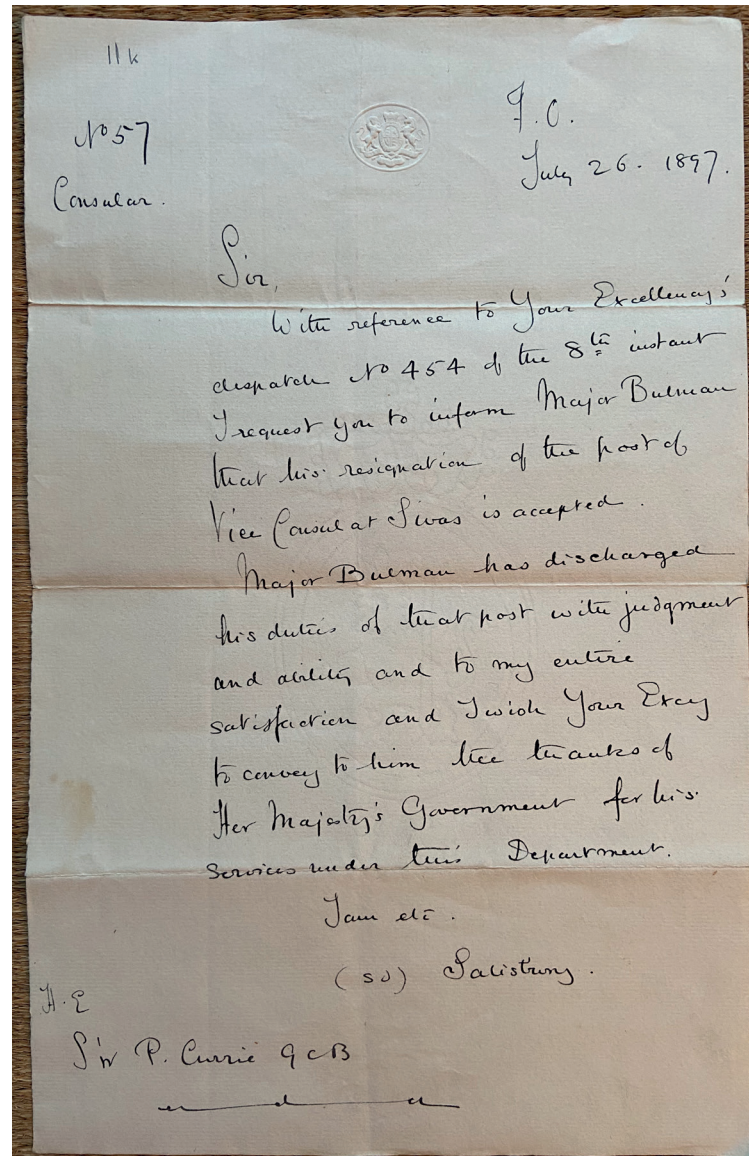 No 57
Consular.
F. O.
July 26. 1897.
Sir,
With reference to Your Excellency's
despatch No 454 of the 8th instant
I request you to inform Major Bulman
that his resignation of the post of
Vice Consul at Sivas is accepted.
Major Bulman has discharged
his duties of that post with judgment
and ability and to my entire
satisfaction and I wish Your Excy
to convey to him the thanks of
Her Majesty's Government for his
services under this Department.
I am etc.
(sd) Salisbury.
H. E
Sir P. Currie GCB